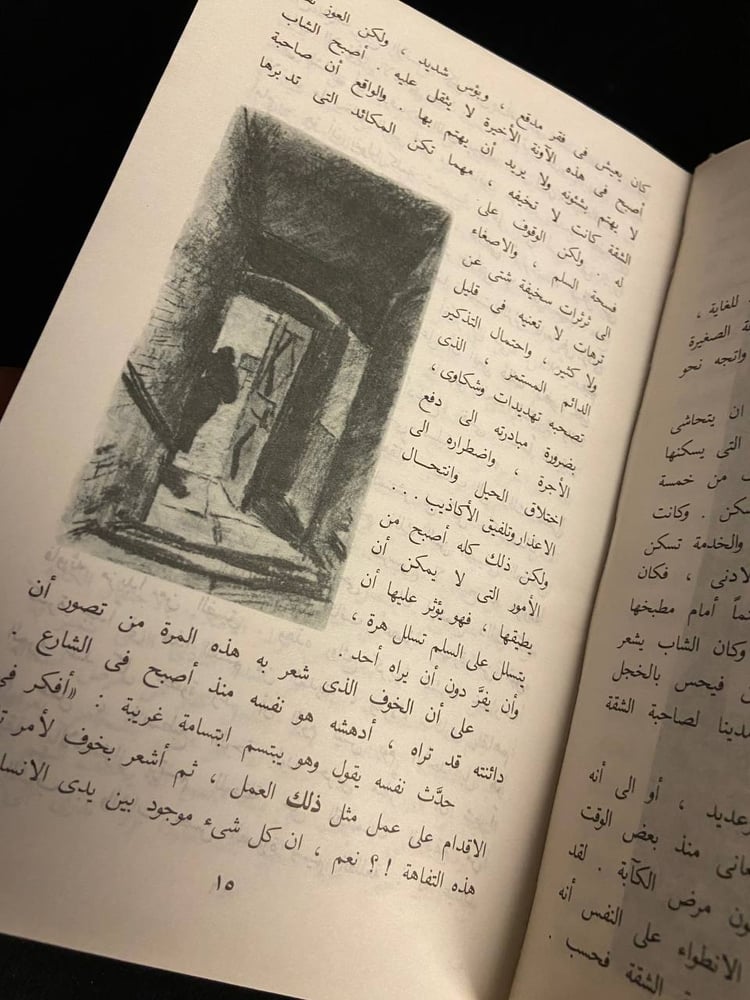 للغاية ،
الصغيرة
واتجه نحو
ان يتحاشى
التى يسكنها
من خمسة
وكانت
والخدمة تسكن
، فكان
أمام مطبخها
وكان الشاب يشعر
فيحس بالخجل
لصاحبة الشقة
، أو الى أنه
منذ بعض الوقت
مرض الكآبة . لقد
الانطواء على النفس أنه
الشقة فحسب .
كان يعيش فى فقر مدقع ، وبؤس شديد ، ولكن العوز
أصبح فى هذه الآونة الأخيرة لا يثقل عليه . أصبح الشاب
لا يهتم بشئونه ولا يريد أن يهتم بها . والواقع أن صاحبة
الشقة كانت لا تخيفه ، مهما تكن المكائد التى تدبرها
له . ولكن الوقوف على
فسحة السلم ، والاصغاء
الى ثرثرات سخيفة شتى عن
ترهات لا تعنيه فى قليل
ولا كثير ، واحتمال التذكير
الدائم المستمر ، الذى
تصحبه تهديدات وشكاوى ،
بضرورة مبادرته الى دفع
الأجرة ، واضطراره الى
اختلاق الحيل وانتحــال
الاعذار وتلفيق الأكاذيب . . .
ولكن ذلك كله أصبح من
الأمور التى لا يمكن أن
يطيقها ، فهو يؤثر عليها أن
يتسلل على السلم تسلل هرة ،
وأن يفرَّ دون أن يراه أحد .
على أن الخوف الذى شعر به هذه المرة من تصور أن
دائنته قد تراه ، أدهشه هو نفسه منذ أصبح فى الشارع .
حدَّث نفسه يقول وهو يبتسم ابتسامة غريبة : «أفكر فى
الاقدام على عمل مثل ذلك العمل ، ثم أشعر بخوف لأمر
هذه التفاهة !؟ نعم ، ان كل شىء موجود بين يدى
١٥